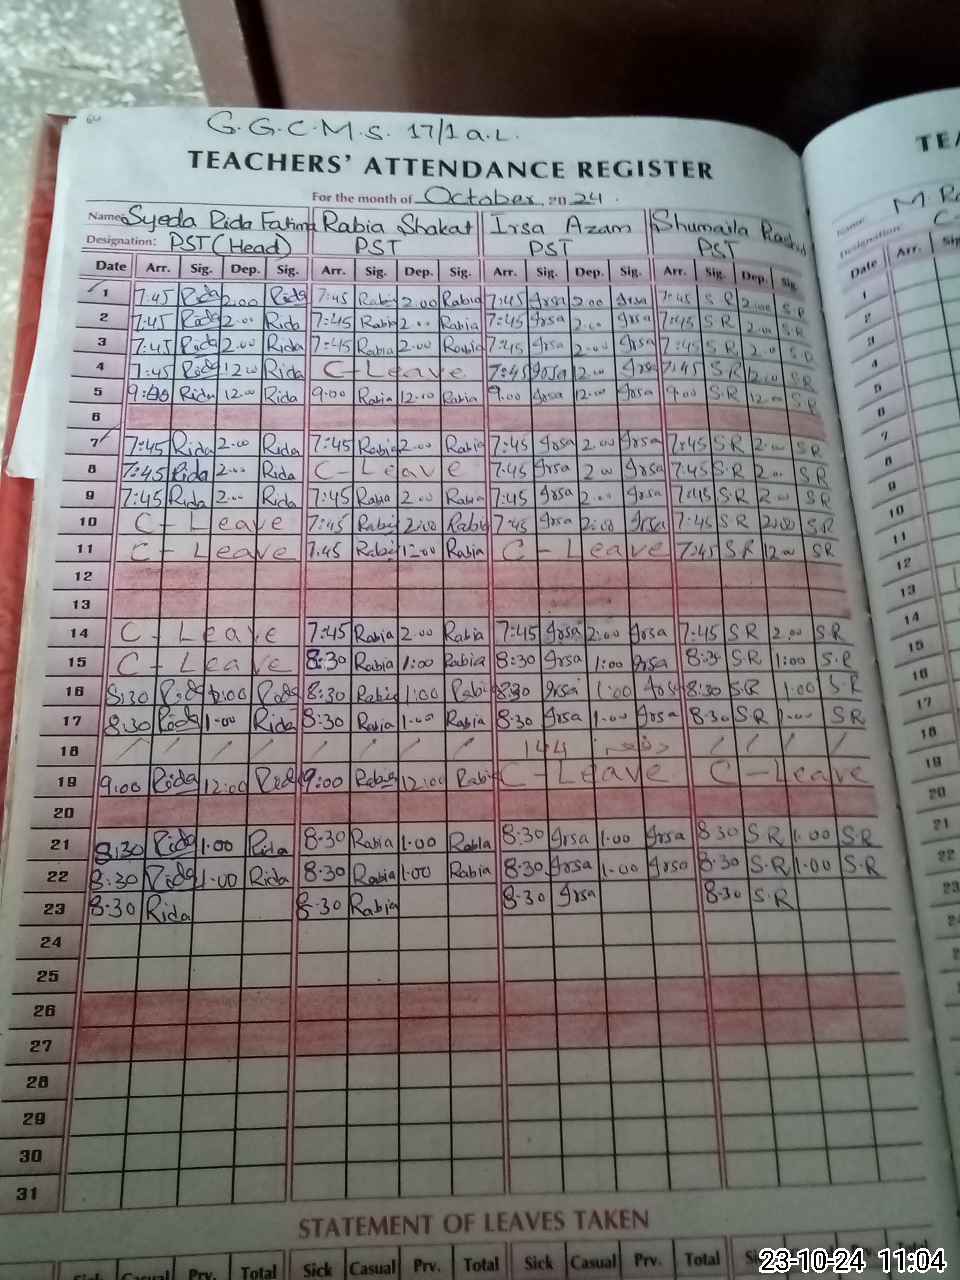 G.G.C.M.S. 17/1 a.L.
TEACHERS' ATTENDANCE REGISTER
For the month of October 20 24.
Name: Syeda Rida Fatima Rabia Shakat Irsa Azam Shumaila
Designation: PST (Head) PST PST PST
Date Arr. Sig. Dep. Sig. Arr. Sig. Dep. Sig. Arr. Sig. Dep. Sig. Arr. Sig. Dep. Sig.
1 7:45 Rida 2.00 Rida 7:45 Rabia 2.00 Rabia 7:45 Irsa 2.00 Irsa 7:45 S R 2.00 S R
2 7:45 Rida 2.00 Rida 7:45 Rabia 2.00 Rabia 7:45 Irsa 2.00 Irsa 7:45 S R 2.00 S R
3 7:45 Rida 2.00 Rida 7:45 Rabia 2.00 Rabia 7:45 Irsa 2.00 Irsa 7:45 S R 2.00 S R
4 7:45 Rida 12.00 Rida C-Leave 7:45 Irsa 12.00 Irsa 7:45 S R 12.00 S R
5 9:00 Rida 12.00 Rida 9.00 Rabia 12.00 Rabia 9.00 Irsa 12.00 Irsa 9.00 S R 12.00 S R
6
7 7:45 Rida 2.00 Rida 7:45 Rabia 2.00 Rabia 7:45 Irsa 2.00 Irsa 7:45 S R 2.00 S R
8 7:45 Rida 2.00 Rida C-Leave 7:45 Irsa 2.00 Irsa 7:45 S.R 2.00 S R
9 7:45 Rida 2.00 Rida 7:45 Rabia 2.00 Rabia 7:45 Irsa 2.00 Irsa 7:45 S.R 2.00 S R
10 C-Leave 7:45 Rabia 2:00 Rabia 7:45 Irsa 2:00 Irsa 7:45 S R 2:00 S.R
11 C-Leave 7.45 Rabia 12:00 Rabia C-Leave 7:45 S R 12.00 S R
12
13
14 C-Leave 7:45 Rabia 2.00 Rabia 7:45 Irsa 2:00 Irsa 7:45 S R 2.00 S.R
15 C-Leave 8:30 Rabia 1:00 Rabia 8:30 Irsa 1:00 Irsa 8:30 S.R 1:00 S.R
16 8:30 Rida 1:00 Rida 8:30 Rabia 1:00 Rabia 8:30 Irsa 1:00 Irsa 8:30 S.R 1.00 S.R
17 8:30 Rida 1.00 Rida 8:30 Rabia 1.00 Rabia 8.30 Irsa 1.00 Irsa 8.30 S.R 1.00 S R
18 / / / / / / / / 144 دفعہ / / / /
19 9:00 Rida 12:00 Rida 9:00 Rabia 12:00 Rabia C-Leave C-Leave
20
21 8:30 Rida 1.00 Rida 8.30 Rabia 1.00 Rabia 8.30 Irsa 1.00 Irsa 8 30 S.R 1.00 S.R
22 8:30 Rida 1.00 Rida 8.30 Rabia 1.00 Rabia 8.30 Irsa 1.00 Irsa 8.30 S.R 1.00 S.R
23 8:30 Rida 8.30 Rabia 8.30 Irsa 8.30 S.R
24
25
26
27
28
29
30
31
STATEMENT OF LEAVES TAKEN
Sick Casual Prv. Total Sick Casual Prv. Total Sick Casual Prv. Total
Name:
Designation:
Date Arr.
1
2
3
4
5
6
7
8
9
10
11
12
13
14
15
16
17
18
19
20
21
22
23
23-10-24 11:04